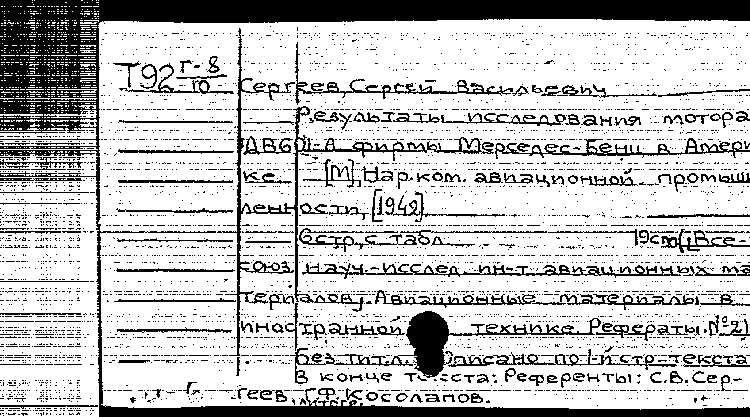 Т92 г-8/10
Сергеев, Сергей Васильевич
Результаты исследования мотора
ДВ601-А фирмы Мерседес-Бенц в Амери
ке. [М], Нар.ком. авиационной промыш
ленности, [1942]
6стр., с табл. 19см (Все-
союз. науч.-исслед. ин-т авиационных ма
териалов). Авиационные материалы в
иностранной технике. Рефераты. №2)
Без тит.л. Описано по 1-й стр. текста
В конце текста: Референты: С.В.Сер-
геев, Г.Ф. Косолапов.